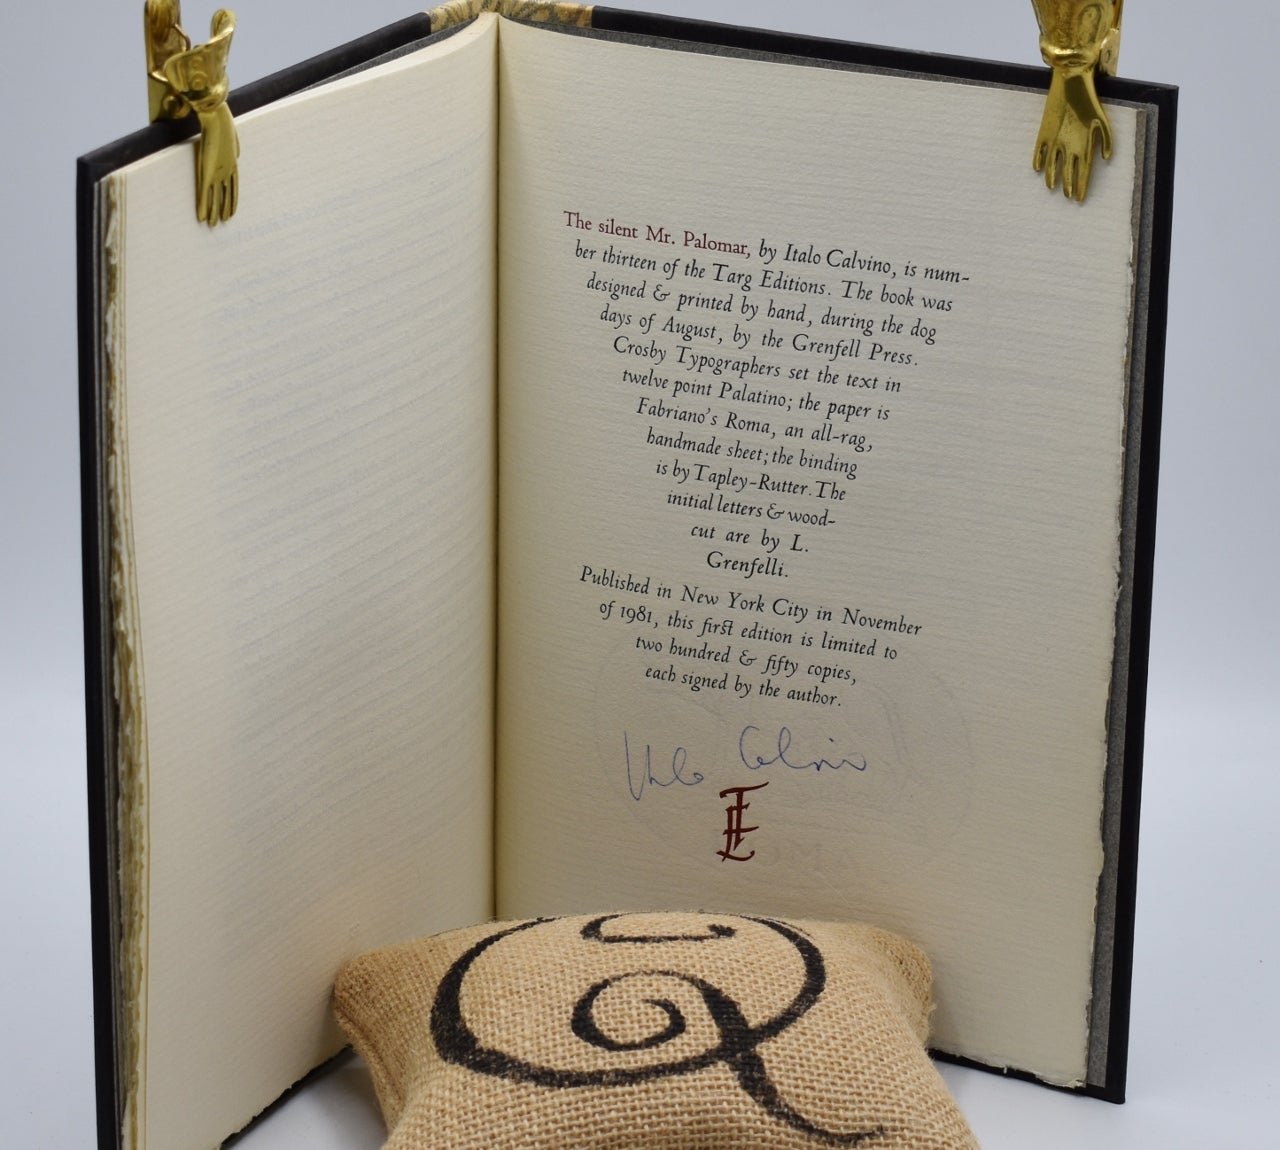 The silent Mr. Palomar, by Italo Calvino, is num-
ber thirteen of the Targ Editions. The book was
designed & printed by hand, during the dog
days of August, by the Grenfell Press.
Crosby Typographers set the text in
twelve point Palatino; the paper is
Fabriano's Roma, an all-rag,
handmade sheet; the binding
is by Tapley-Rutter. The
initial letters & wood-
cut are by L.
Grenfelli.
Published in New York City in November
of 1981, this first edition is limited to
two hundred & fifty copies,
each signed by the author.
Italo Calvino